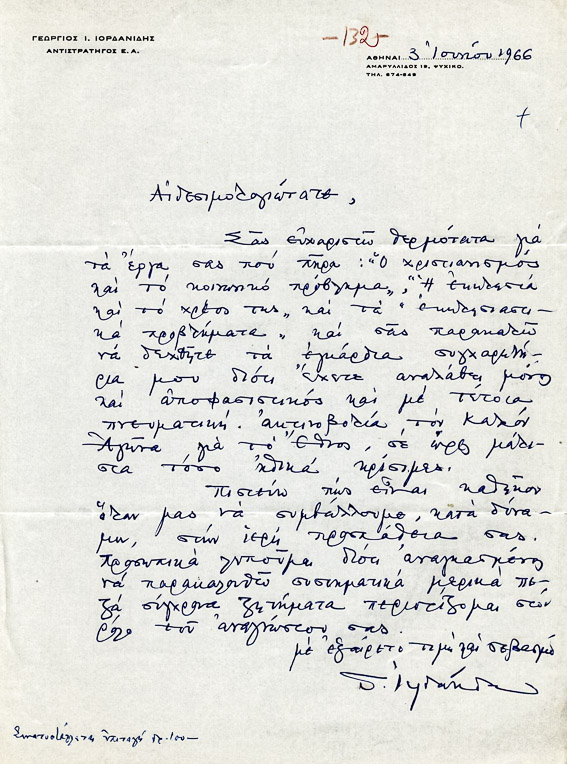 ΓΕΩΡΓΙΟΣ Ι. ΙΟΡΔΑΝΙΔΗΣ
ΑΝΤΙΣΤΡΑΤΗΓΟΣ Ε.Α.
-132-
ΑΘΗΝΑΙ 3 Ἰουνίου 1966
ΑΜΑΡΥΛΛΙΔΟΣ 19, ΨΥΧΙΚΟ.
ΤΗΛ. 674-649
+
Αἰδεσιμολογιώτατε,
Σᾶς εὐχαριστῶ θερμότατα γιὰ
τὰ ἔργα σας ποὺ πῆρα : "Ὁ χριστιανισμὸς
καὶ τὸ κοινωνικὸ πρόβλημα", "Ἡ ἐκκλησία
καὶ τὸ χρέος της" καὶ τὰ "ἐκκλησιαστι-
κὰ προβλήματα" καὶ σᾶς παρακαλῶ
νὰ δεχθῆτε τὰ ἐγκάρδια συγχαρητή-
ρια μου διότι ἔχετε ἀναλάβει μόνος
καὶ ἀποφασιστικὸς καὶ μὲ τέτοια
πνευματικὴ ἀκτινοβολία τὸν καλὸν
Ἀγῶνα γιὰ τὸ Ἔθνος, σὲ ὧρες μάλι-
στα τόσο ἠθικὰ κρίσιμες.
Πιστεύω πὼς εἶναι καθῆκον
ὅλων μας νὰ συμβάλλουμε, κατὰ δύνα-
μιν, στὴν ἱερὴ προσπάθεια σας.
Προσωπικὰ λυποῦμαι διότι ἀναγκασμένος
νὰ παρακολουθῶ συστηματικὰ μερικὰ πε-
ζὰ σύγχρονα ζητήματα περιορίζομαι στὸν
ρόλο τοῦ ἀναγνώστου σας.
μὲ ἐξαίρετο τιμὴ καὶ σεβασμὸ
Γ. Ἰορδανίδης
ἐπιταγὴ δρ. 100-